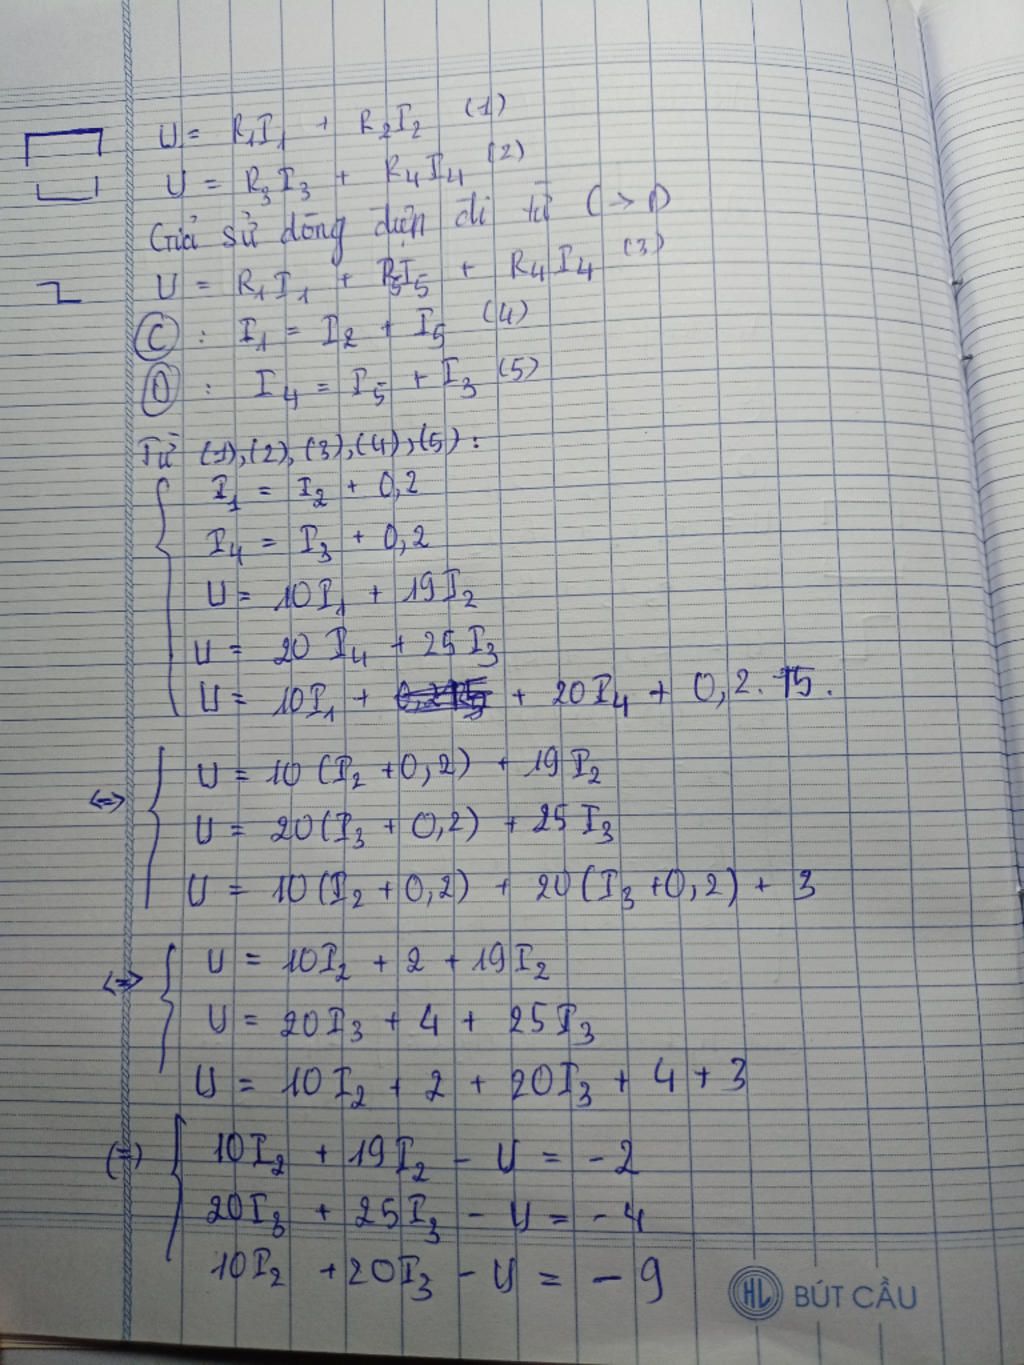 U = R₁I₁ + R₂I₂ (1)
U = R₃I₃ + R₄I₄ (2)
Giả sử dòng điện đi từ C → D
U = R₁I₁ + R₅I₅ + R₄I₄ (3)
C : I₁ = I₂ + I₅ (4)
D : I₄ = I₅ + I₃ (5)
Từ (1), (2), (3), (4), (5) :
I₁ = I₂ + 0,2
I₄ = I₃ + 0,2
U = 10I₁ + 19I₂
U = 20I₄ + 25I₃
U = 10I₁ + + 20I₄ + 0,2.15.
<=> U = 10(I₂ + 0,2) + 19I₂
U = 20(I₃ + 0,2) + 25I₃
U = 10(I₂ + 0,2) + 20(I₃ + 0,2) + 3
<=> U = 10I₂ + 2 + 19I₂
U = 20I₃ + 4 + 25I₃
U = 10I₂ + 2 + 20I₃ + 4 + 3
(=) 10I₂ + 19I₂ - U = -2
20I₃ + 25I₃ - U = -4
10I₂ + 20I₃ - U = -9
HL BÚT CẦU